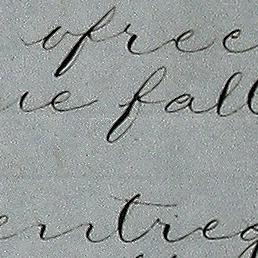 ofrece
ue fall
entreg